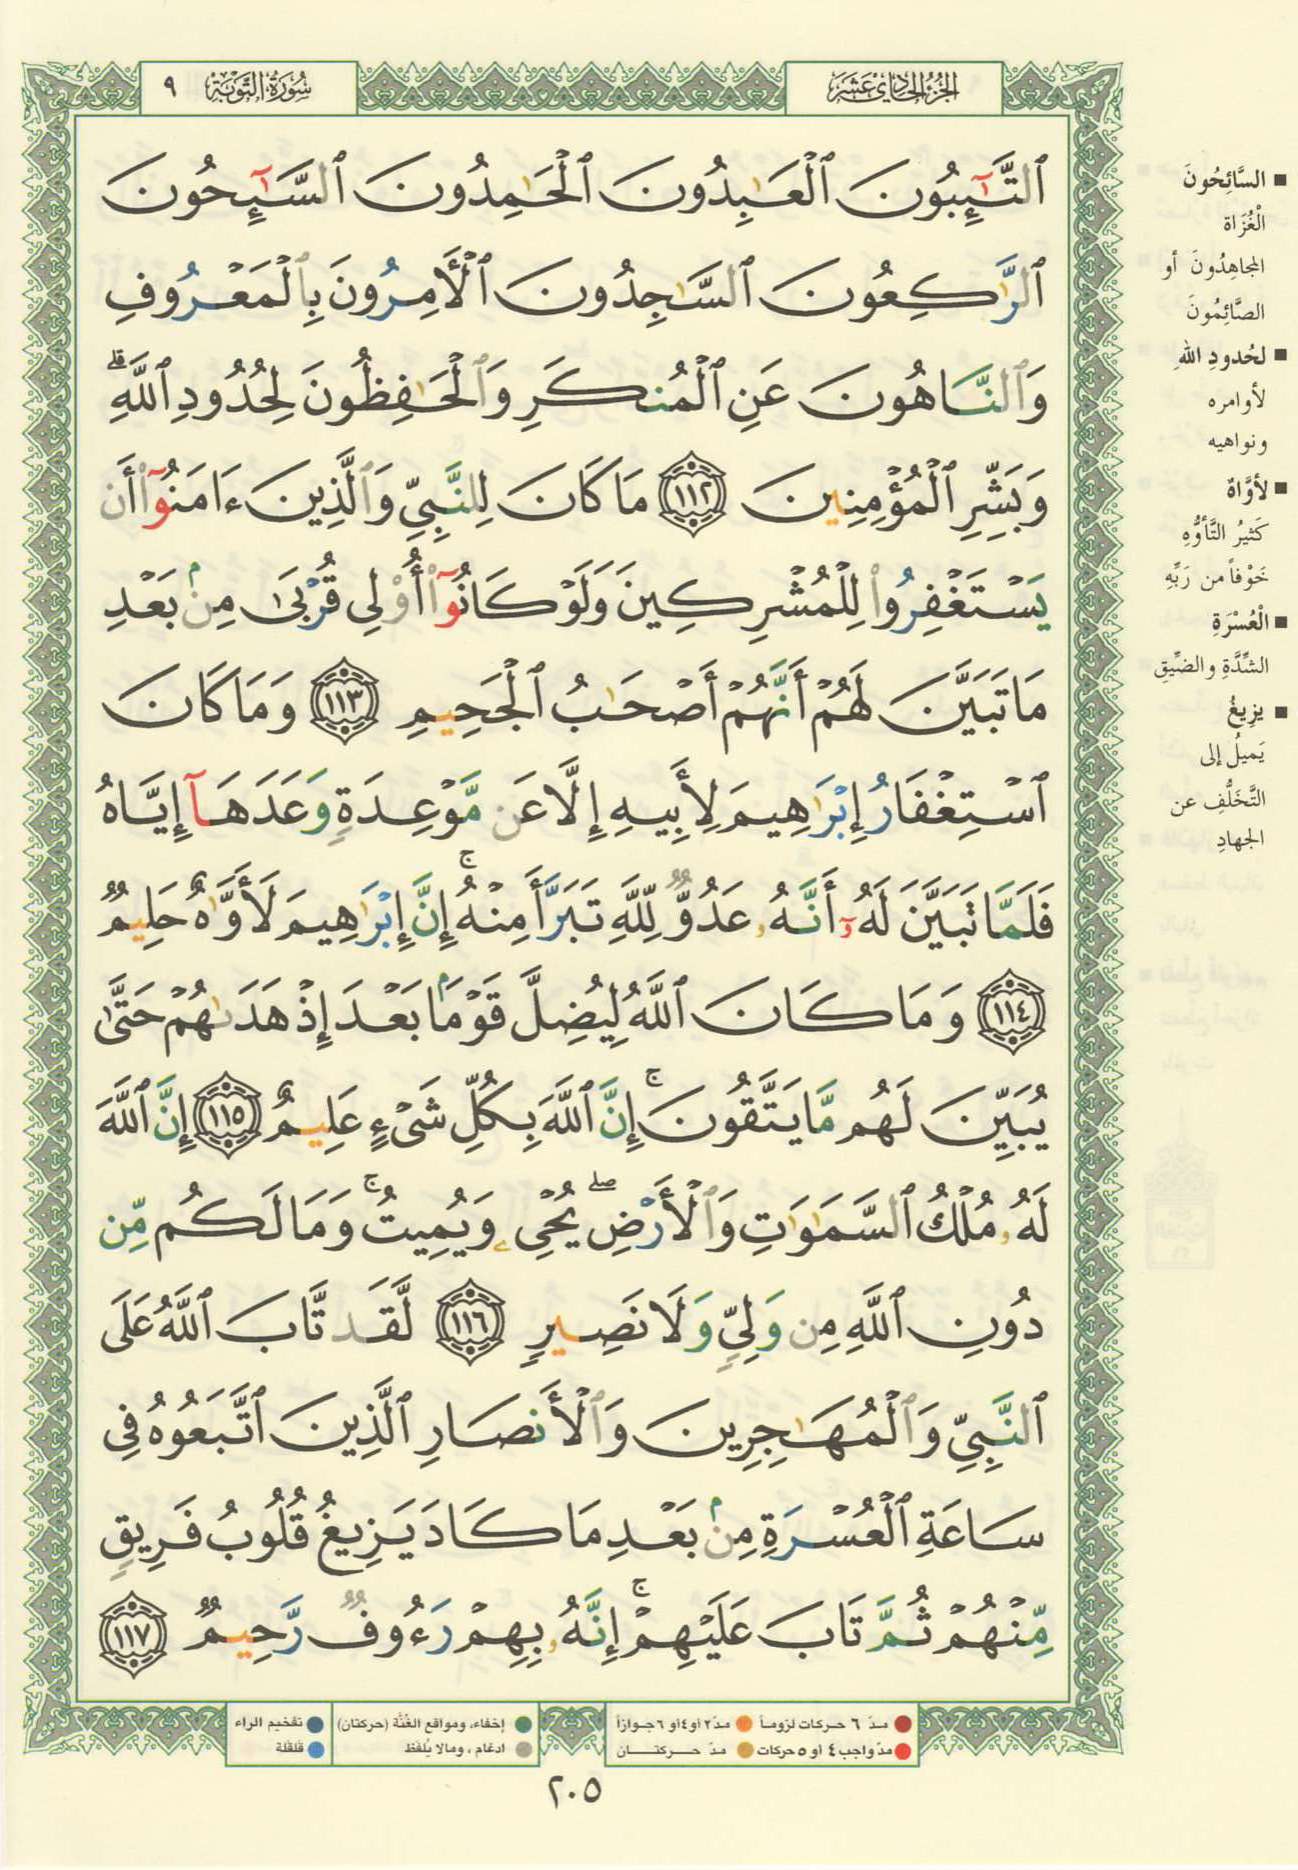 الجزء الحادي عشر
سورة التوبة ٩
ٱلتَّٰٓئِبُونَ ٱلْعَٰبِدُونَ ٱلْحَٰمِدُونَ ٱلسَّٰٓئِحُونَ
ٱلرَّٰكِعُونَ ٱلسَّٰجِدُونَ ٱلْأٓمِرُونَ بِٱلْمَعْرُوفِ
وَٱلنَّاهُونَ عَنِ ٱلْمُنكَرِ وَٱلْحَٰفِظُونَ لِحُدُودِ ٱللَّهِۗ
وَبَشِّرِ ٱلْمُؤْمِنِينَ ١١٢ مَا كَانَ لِلنَّبِيِّ وَٱلَّذِينَ ءَامَنُوٓا۟ أَن
يَسْتَغْفِرُوا۟ لِلْمُشْرِكِينَ وَلَوْ كَانُوٓا۟ أُو۟لِى قُرْبَىٰ مِنۢ بَعْدِ
مَا تَبَيَّنَ لَهُمْ أَنَّهُمْ أَصْحَٰبُ ٱلْجَحِيمِ ١١٣ وَمَا كَانَ
ٱسْتِغْفَارُ إِبْرَٰهِيمَ لِأَبِيهِ إِلَّا عَن مَّوْعِدَةٍ وَعَدَهَآ إِيَّاهُ
فَلَمَّا تَبَيَّنَ لَهُۥٓ أَنَّهُۥ عَدُوٌّ لِّلَّهِ تَبَرَّأَ مِنْهُۚ إِنَّ إِبْرَٰهِيمَ لَأَوَّٰهٌ حَلِيمٌ
١١٤ وَمَا كَانَ ٱللَّهُ لِيُضِلَّ قَوْمًۢا بَعْدَ إِذْ هَدَىٰهُمْ حَتَّىٰ
يُبَيِّنَ لَهُم مَّا يَتَّقُونَۚ إِنَّ ٱللَّهَ بِكُلِّ شَىْءٍ عَلِيمٌ ١١٥ إِنَّ ٱللَّهَ
لَهُۥ مُلْكُ ٱلسَّمَٰوَٰتِ وَٱلْأَرْضِۖ يُحْىِۦ وَيُمِيتُۚ وَمَا لَكُم مِّن
دُونِ ٱللَّهِ مِن وَلِىٍّ وَلَا نَصِيرٍ ١١٦ لَّقَد تَّابَ ٱللَّهُ عَلَى
ٱلنَّبِىِّ وَٱلْمُهَٰجِرِينَ وَٱلْأَنصَارِ ٱلَّذِينَ ٱتَّبَعُوهُ فِى
سَاعَةِ ٱلْعُسْرَةِ مِنۢ بَعْدِ مَا كَادَ يَزِيغُ قُلُوبُ فَرِيقٍ
مِّنْهُمْ ثُمَّ تَابَ عَلَيْهِمْۚ إِنَّهُۥ بِهِمْ رَءُوفٌ رَّحِيمٌ ١١٧
■ السَّائِحُونَ
الْغُزَاة
المجاهِدُونَ أو
الصَّائِمُونَ
■ لحُدودِ اللهِ
لأوامره
ونواهيه
■ لأوَّاهٌ
كَثيرُ التَّأوُّهِ
خَوْفاً من رَبِّهِ
■ الْعُسْرَةِ
الشِّدَّةِ والضِّيقِ
■ يزِيغُ
يَميلُ إلى
التَّخَلُّفِ عن
الجهادِ
مدّ ٦ حركات لزوماً ● مدّ ٢ أو ٤ أو ٦ جوازاً
مدّ واجب ٤ أو ٥ حركات ● مدّ حركتان
إخفاء، ومواقع الغُنَّة (حركتان) ● تفخيم الراء
ادغام، ومالا يُلفظ ● قلقلة
٢٠٥